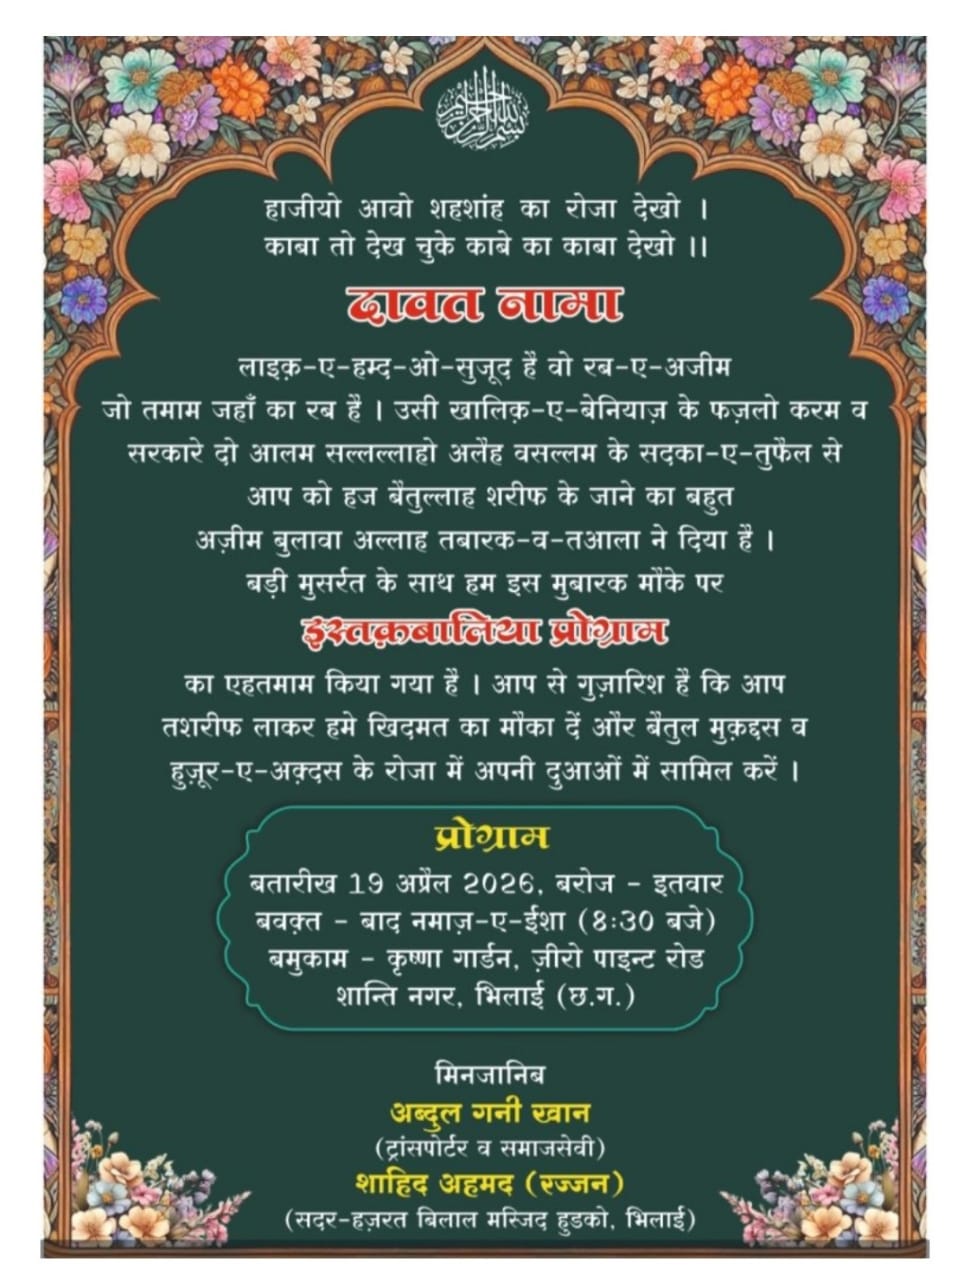 हाजीयो आवो शहशांह का रोजा देखो ।
काबा तो देख चुके काबे का काबा देखो ।।
दावत नामा
लाइक़-ए-हम्द-ओ-सुजूद है वो रब-ए-अजीम
जो तमाम जहाँ का रब है । उसी खालिक़-ए-बेनियाज़ के फज़लो करम व
सरकारे दो आलम सल्लल्लाहो अलैह वसल्लम के सदका-ए-तुफैल से
आप को हज बैतुल्लाह शरीफ के जाने का बहुत
अज़ीम बुलावा अल्लाह तबारक-व-तआला ने दिया है ।
बड़ी मुसर्रत के साथ हम इस मुबारक मौके पर
इस्तक़बालिया प्रोग्राम
का एहतमाम किया गया है । आप से गुज़ारिश है कि आप
तशरीफ लाकर हमे खिदमत का मौका दें और बैतुल मुक़द्दस व
हुज़ूर-ए-अक़्दस के रोजा में अपनी दुआओं में सामिल करें ।
प्रोग्राम
बतारीख 19 अप्रैल 2026, बरोज - इतवार
बवक़्त - बाद नमाज़-ए-ईशा (8:30 बजे)
बमुकाम - कृष्णा गार्डन, ज़ीरो पाइन्ट रोड
शान्ति नगर, भिलाई (छ.ग.)
मिनजानिब
अब्दुल गनी खान
(ट्रांसपोर्टर व समाजसेवी)
शाहिद अहमद (रज्जन)
(सदर-हज़रत बिलाल मस्जिद हुडको, भिलाई)